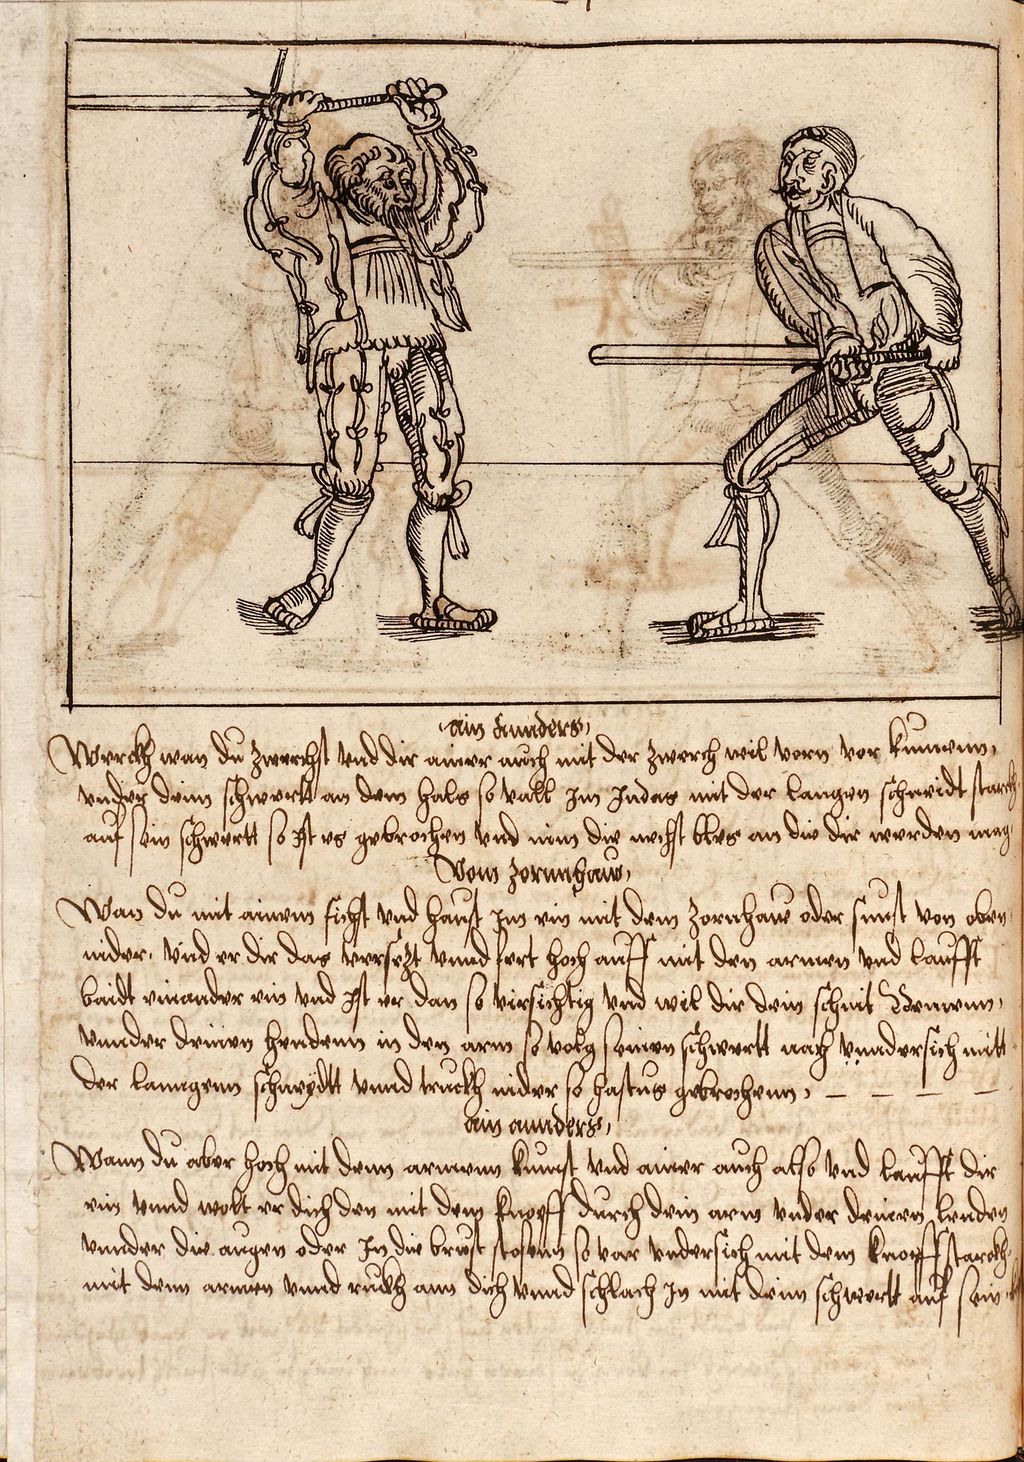 ain annders,
Merckh wan du zwerchst vnd dir ainer auch mit der zwerch wil vorn vor kumenn,
vnder deim schwertt an dem hals so vall Im Indas mit der langen schneidt starckh
auf sein schwertt so Ist es gebrochen vnd nim die nechst bles an die dir werden mag
Vom zornnhaw,
Wan du mit ainem fichst vnd haust Im ein mit dem zornhaw oder sunst von oben
nider, vnd er dir das versetzt vnnd fert hoch auff mit den armen vnd laufft
baidt einander ein vnd Ist er dan so virsichtig vnd wil dir dein schnit Nemenn,
vnnder deinen hendenn in den arm so volg seinem schwertt nach vnndersich mitt
der lanngenn schneydtt vnnd truckh nider so hastus gebrochenn,
ain annders,
Wann du aber hoch mit denn armenn kumst vnd ainer auch also vnd laufft dir
ein vnnd wolt er dich den mit dem knopff durch dein arm vnder deinen henden
vnnder die augen oder In die brust stosenn so var vndersich mit dem knopff starckh
mit denn armen vnnd ruckh ann dich vnnd schlach In mit deim schwertt auf sein